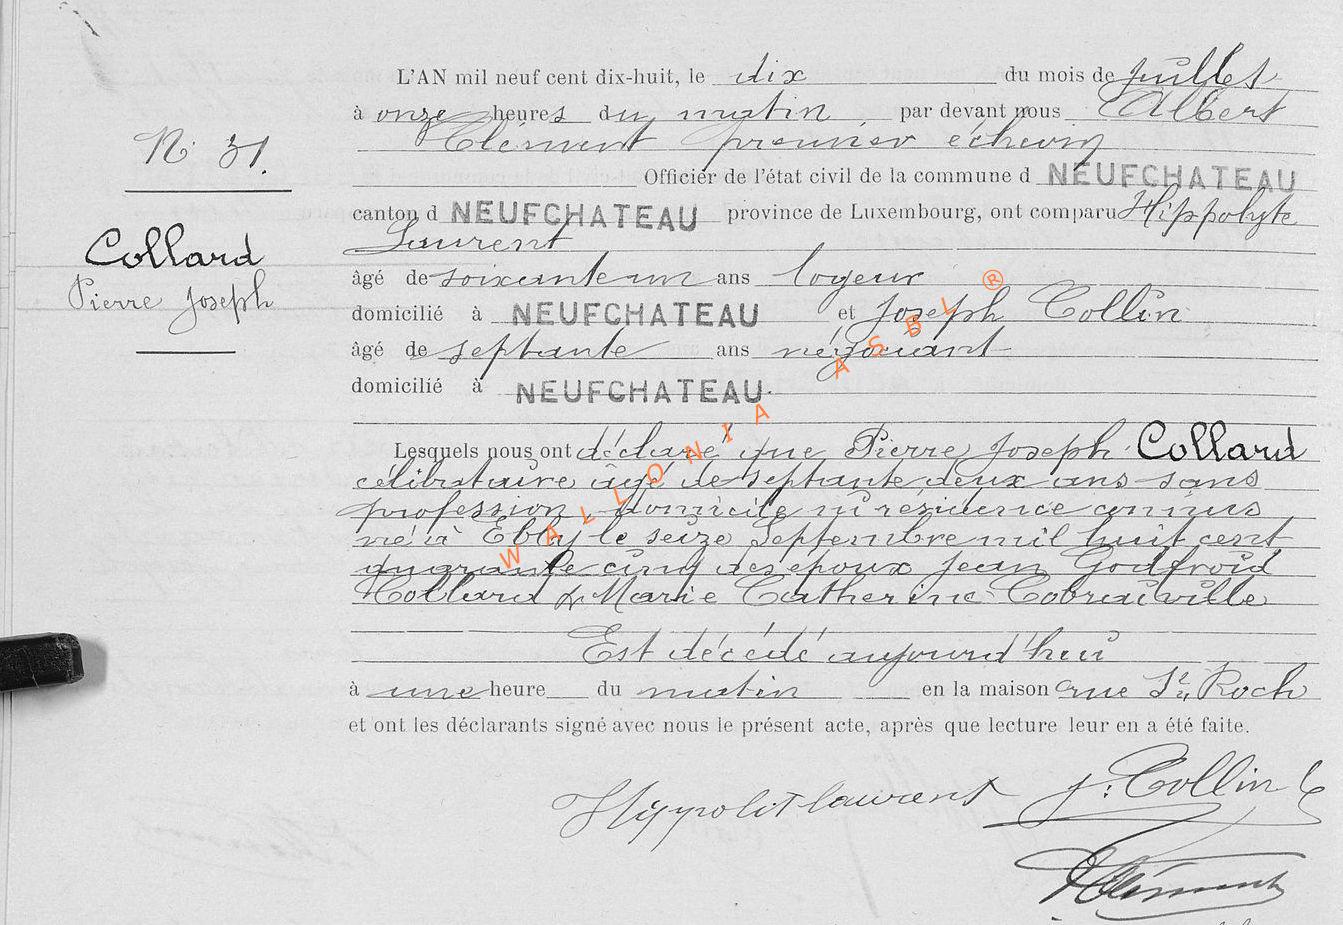 L'AN mil neuf cent dix-huit, le dix du mois de juillet
à onze heures du matin par devant nous Albert
Clément premier échevin
Officier de l'état civil de la commune d NEUFCHATEAU
canton d NEUFCHATEAU province de Luxembourg, ont comparu Hippolyte
Laurent
âgé de soixante un ans loyeur
domicilié à NEUFCHATEAU et Joseph Collin
âgé de septante ans négociant
domicilié à NEUFCHATEAU.
N° 31.
Collard
Pierre Joseph
Lesquels nous ont déclaré que Pierre Joseph Collard
célibataire âgé de septante deux ans sans
profession, domicile ni résidence connus
né à Ebly le seize Septembre mil huit cent
quarante cinq des époux Jean Godfroid
Collard & Marie Catherine Cobraiville
Est décédé aujourd'hui
à une heure du matin en la maison rue St Roch
et ont les déclarants signé avec nous le présent acte, après que lecture leur en a été faite.
Hippolit laurent J. Collin
AClément
WALLONIA ASBL ®